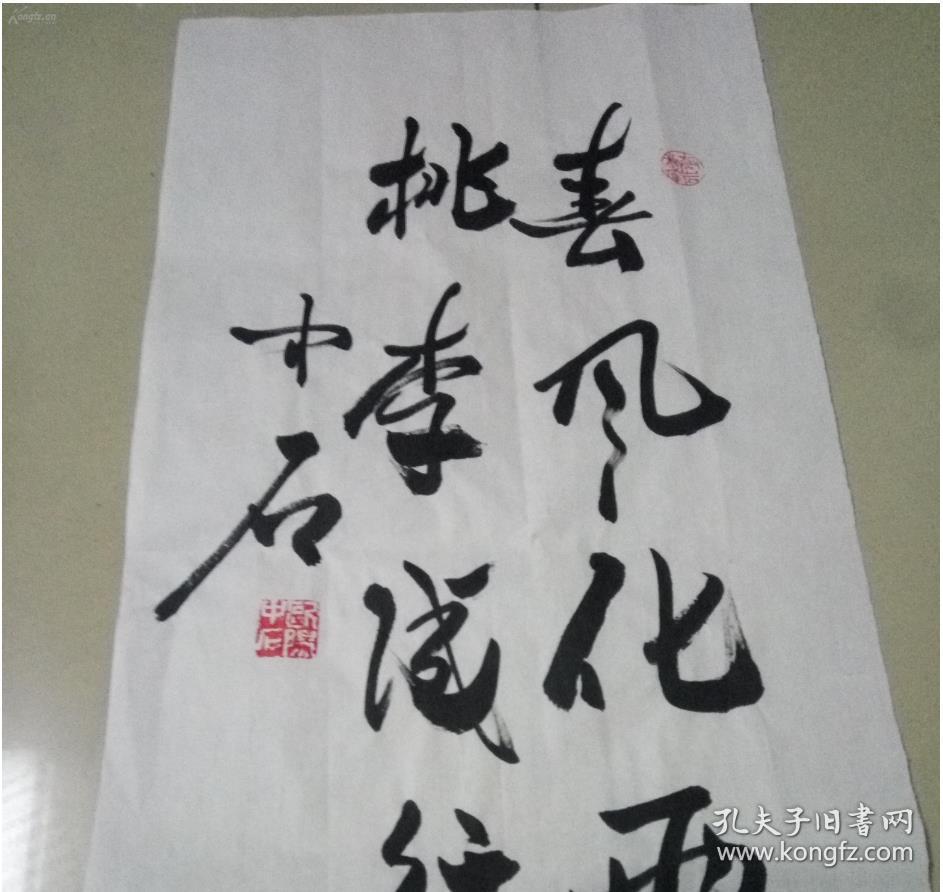 春风化雨
桃李成行
中石
欧阳中石
孔夫子旧书网
www.kongfz.com
Kongfz.cn